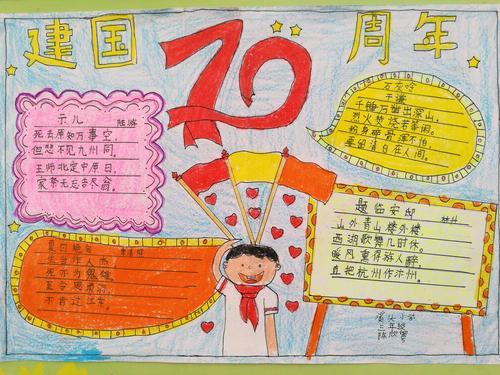 建国70周年
示儿 陆游
死去原知万事空,
但悲不见九州同。
王师北定中原日,
家祭无忘告乃翁。
于谦
千锤万凿出深山,
烈火焚烧若等闲。
粉身碎骨全不怕
要留清白在人间。
夏日绝句 李清照
生当作人杰
死亦为鬼雄
至今思项羽
不肯过江东。
题临安邸 林升
山外青山楼外楼,
西湖歌舞几时休。
暖风熏得游人醉
直把杭州作汴州。
头小学
三年级
陈欣